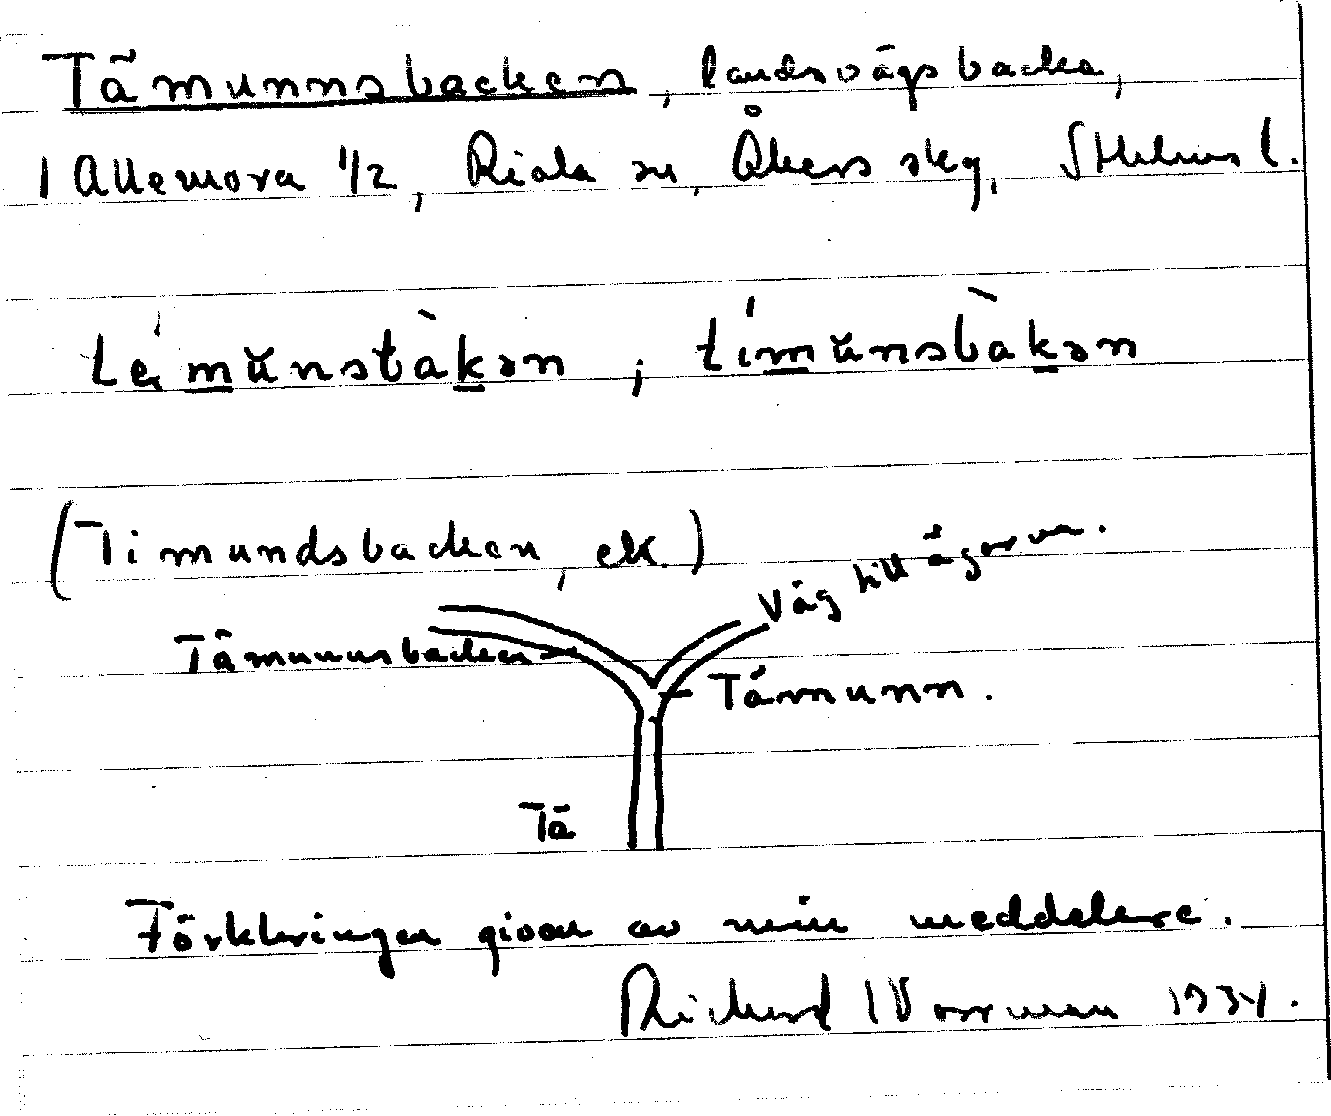 Tämunnsbacken, landsvägsbacke,
1 Allemora 1/2, Riala sn, Åkers skg, Sthlms l.
(Timundsbacken, ek.)
Väg till ägorna.
Tämunnsbacken
Tämunn.
Tä
Förklaringen given av min meddelare.
Richard Norrman 1934.